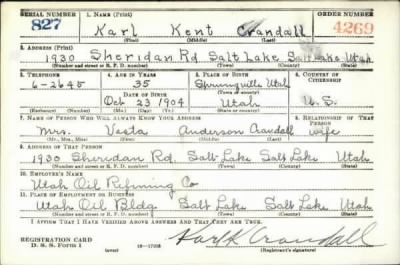 SERIAL NUMBER 1. NAME (Print) ORDER NUMBER
827 Karl Kent Crandall 4269
(First) (Middle) (Last)
2. ADDRESS (Print)
1930 Sheridan Rd Salt Lake Salt Lake Utah
(Number and street or R. F. D. number) (Town) (County) (State)
3. TELEPHONE 4. AGE IN YEARS 5. PLACE OF BIRTH 6. COUNTRY OF CITIZENSHIP
6-2645 35 Springville Utah
(Town or county)
DATE OF BIRTH
Oct 23 1904 Utah U.S.
(Exchange) (Number) (Mo.) (Day) (Yr.) (State or country)
7. NAME OF PERSON WHO WILL ALWAYS KNOW YOUR ADDRESS 8. RELATIONSHIP OF THAT PERSON
Mrs. Vesta Anderson Crandall wife
(Mr., Mrs., Miss) (First) (Middle) (Last)
9. ADDRESS OF THAT PERSON
1930 Sheridan Rd. Salt Lake Salt Lake Utah
(Number and street or R. F. D. number) (Town) (County) (State)
10. EMPLOYER'S NAME
Utah Oil Refining Co
11. PLACE OF EMPLOYMENT OR BUSINESS
Utah Oil Bldg Salt Lake Salt Lake Utah
(Number and street or R. F. D. number) (Town) (County) (State)
I AFFIRM THAT I HAVE VERIFIED ABOVE ANSWERS AND THAT THEY ARE TRUE.
REGISTRATION CARD
D. S. S. FORM 1 (over) Karl K Crandall
(Registrant's signature)